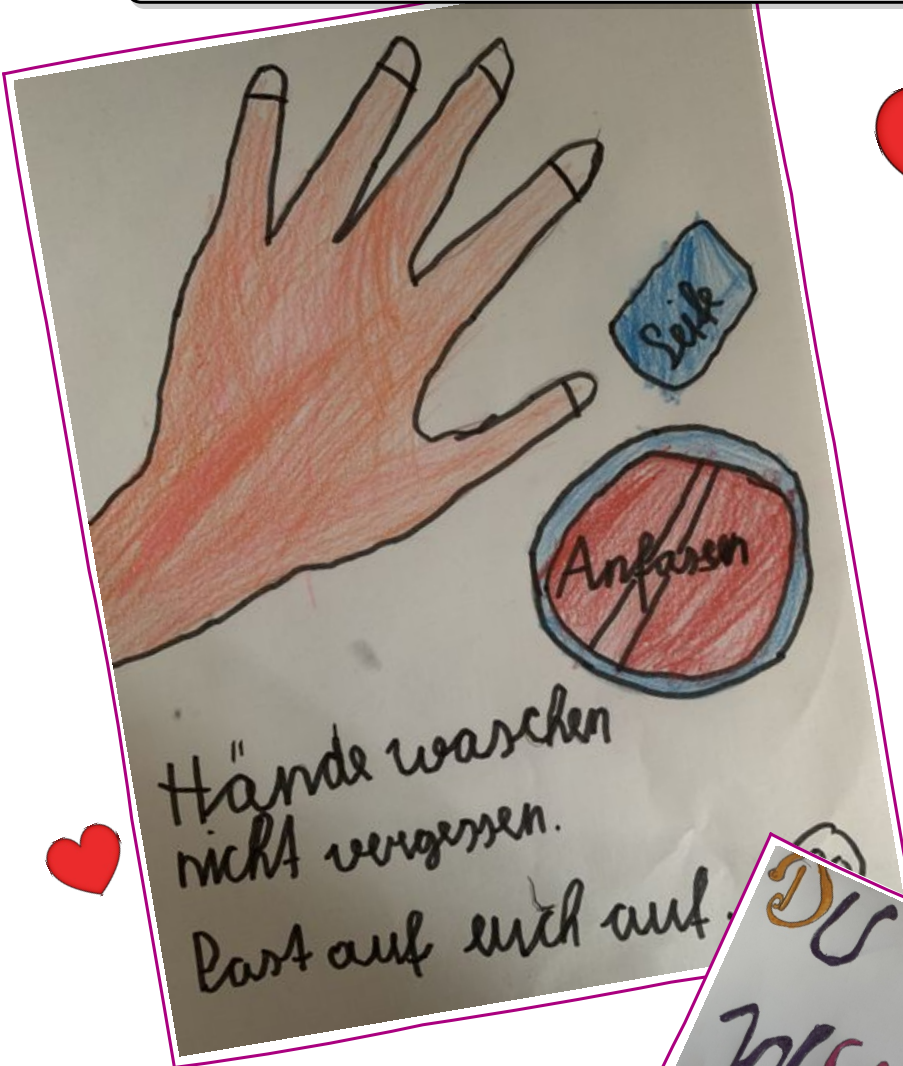 Seife
Anfassen
Hände waschen
nicht vergessen.
Past auf euch auf.
DU